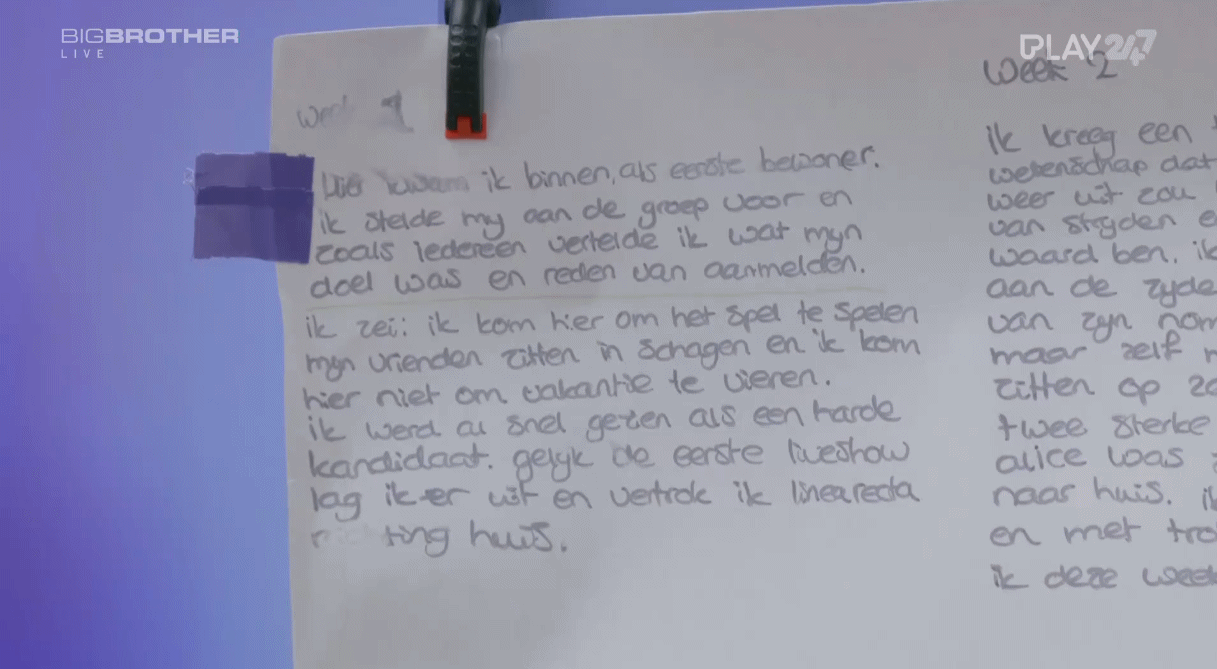 BIGBROTHER
LIVE
PLAY 24/7
week 1
Hier kwam ik binnen, als eerste bewoner.
ik stelde mij aan de groep voor en
zoals iedereen vertelde ik wat mijn
doel was en reden van aanmelden.
ik zei: ik kom hier om het spel te spelen
mijn vrienden zitten in Schagen en ik kom
hier niet om vakantie te vieren.
ik werd al snel gezien als een harde
kandidaat. gelijk de eerste liveshow
lag ik er uit en vertrok ik linearecta
huis.
week 2
ik kreeg een
wetenschap dat
weer uit zou
van strijden e
waard ben. ik
aan de zijde
van zijn nom
maar zelf
zitten op
twee sterke
alice was
naar huis.
en met tro
ik deze week